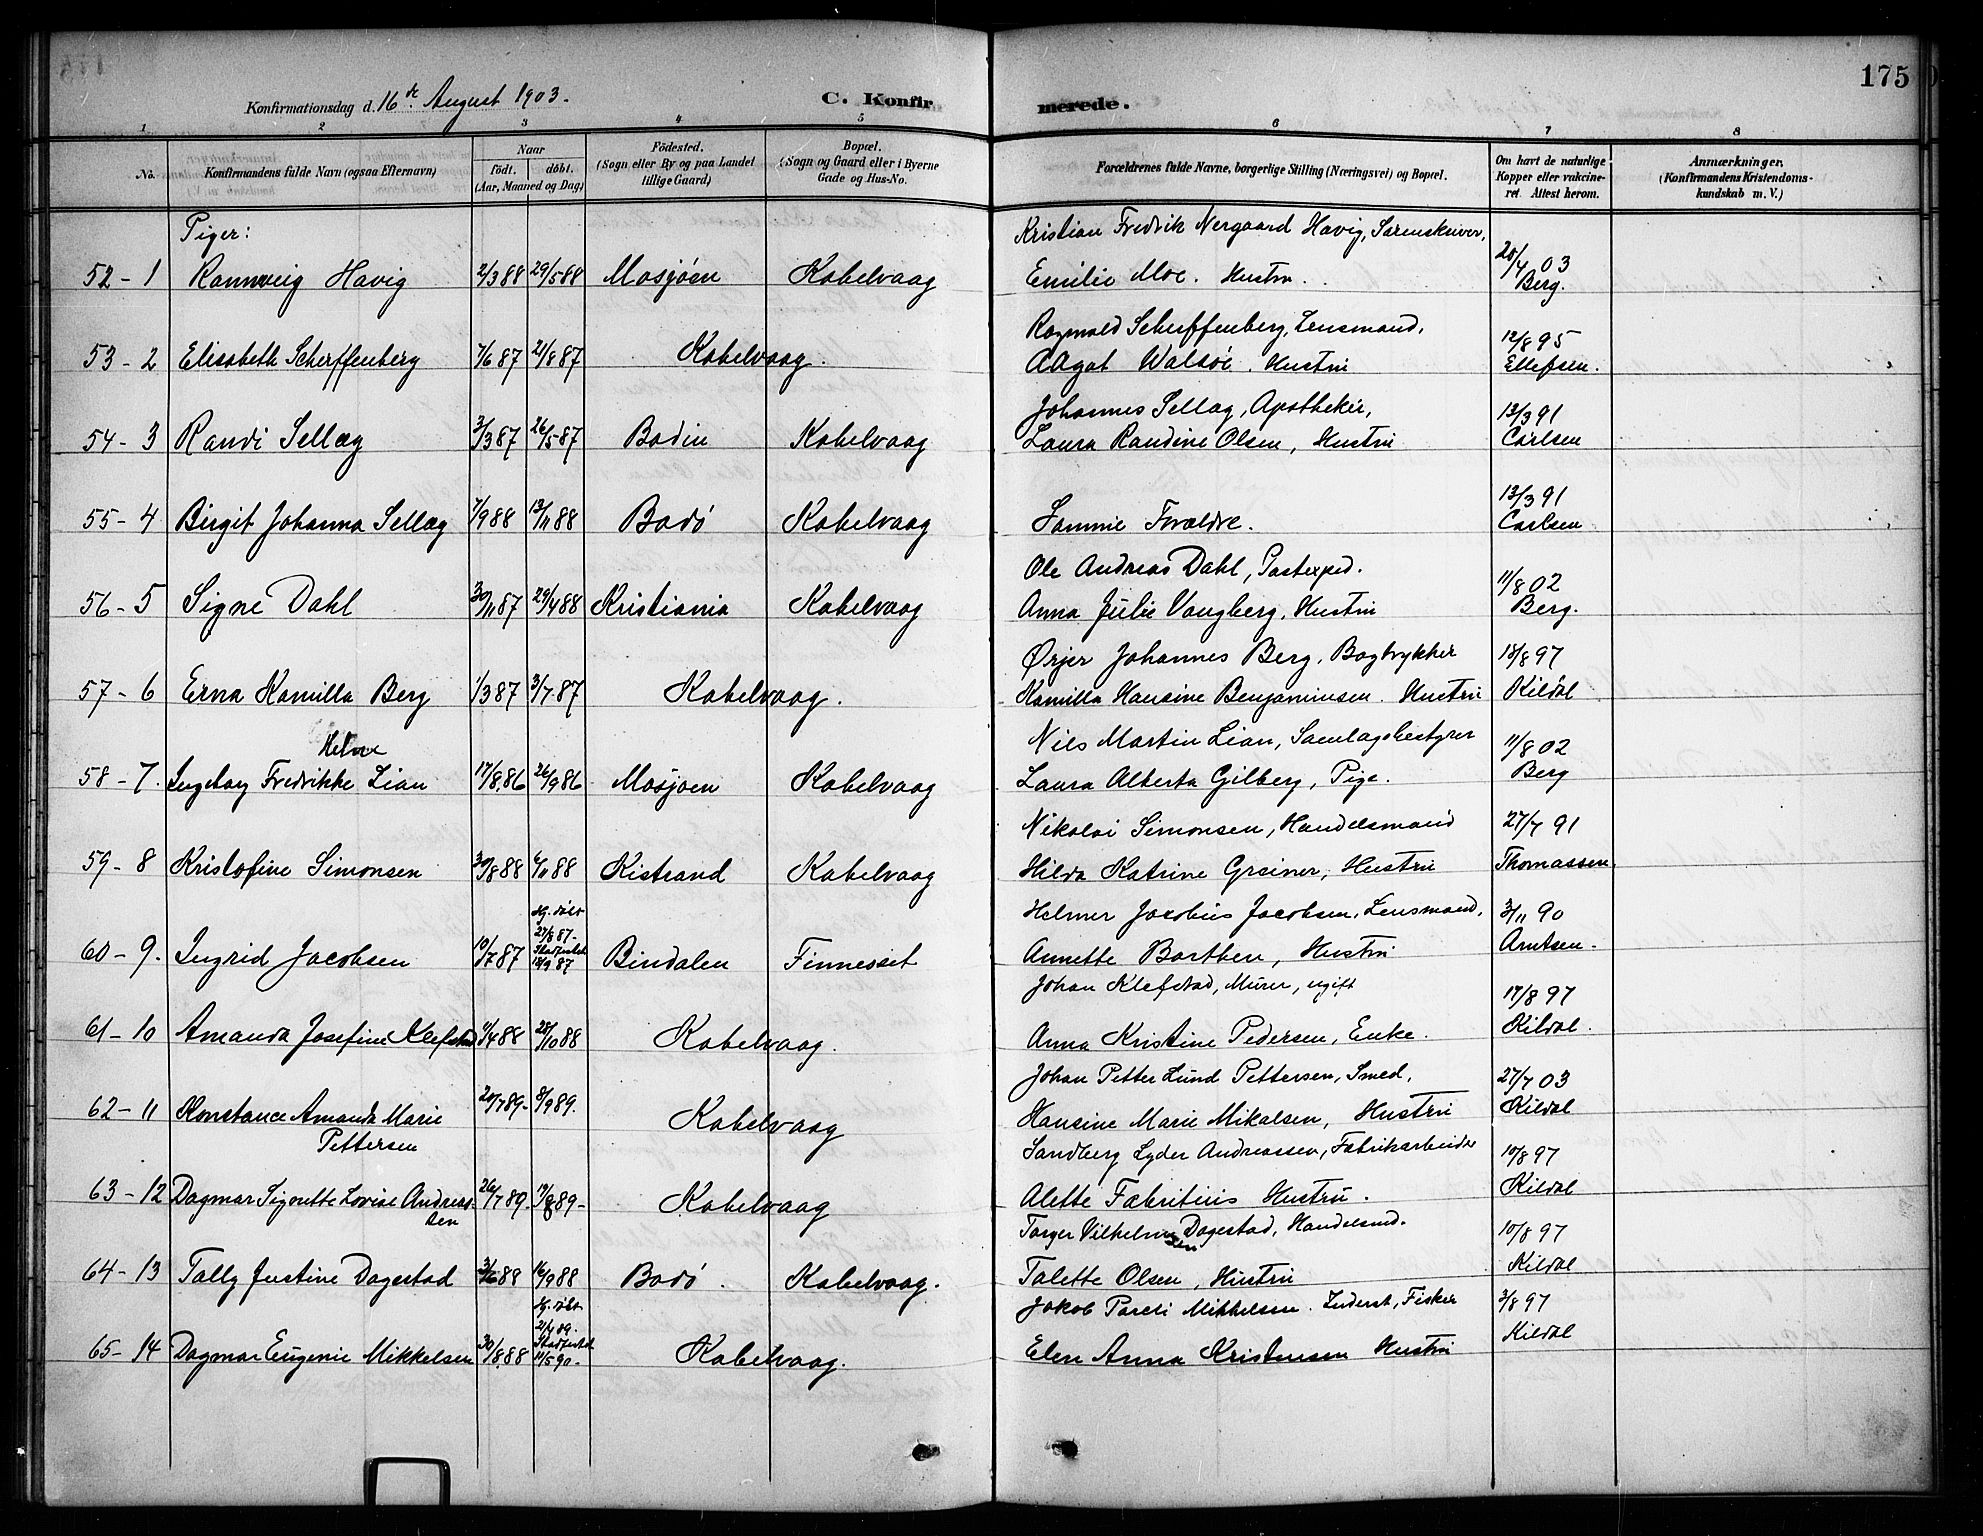 175
Konfirmationsdag d. 16de August 1903.
C. Konfirmerede.
1 2 3 4 5 6 7 8
No. Konfirmandens fulde Navn (ogsaa Efternavn) Naar født. døbt. (Aar, Maaned og Dag) Fødested. (Sogn eller By og paa Landet tillige Gaard) Bopæl. (Sogn og Gaard eller i Byerne Gade og Hus-No. Forældrenes fulde Navne, borgerlige Stilling (Næringsvei) og Bopæl. Om havt de naturlige Kopper eller vakcineret. Attest herom. Anmærkninger, (Konfirmandens Kristendomskundskab m. V.)
Piger:
Kristian Fredrik Nergaard Havig, Sorenskriver,
52 - 1 Rannveig Havig 2/3 88 29/5 88 Mosjøen Kabelvaag Emilie Moe. Hustru. 20/4 03 Berg.
Ragnvald Scherffenberg, Lensmand,
53 - 2 Elisabeth Scherffenberg 7/6 87 21/8 87 Kabelvaag. Aagot Walsøe. Hustru 12/8 95 Ellefsen.
Johannes Sellæg, Apotheker,
54 - 3 Randi Sellæg 3/3 87 26/5 87 Bodin Kabelvaag Laura Randine Olsen, Hustru 13/3 91 Carlsen
55 - 4 Birgit Johanna Sellæg 7/9 88 13/11 88 Bodø Kabelvaag Samme Forældre. 13/3 91 Carlsen
Ole Andreas Dahl, Postexped.
56 - 5 Signe Dahl 30/11 87 29/4 88 Kristiania Kabelvaag Anna Julie Vangberg, Hustru 11/8 02 Berg.
Ørjer Johannes Berg, Bogtrykker
57 - 6 Erna Kamilla Berg 1/3 87 3/7 87 Kabelvaag. Kamilla Hansine Benjaminsen. Hustru 18/8 97 Kildal
Nils Martin Lian, Samlagsbestyrer
58 - 7. Ingeborg Fredrikke Lian 17/8 86 26/9 86 Mosjøen Kabelvaag Laura Alberta Gilberg, Pige. 11/8 02 Berg
Nikolai Simonsen, Handelsmand
59 - 8 Kristofine Simonsen 30/8 88 88 Kistrand Kabelvaag Hilda Katrine Greiner, Hustru 27/7 91 Thomassen.
Helmer Jacobus Jacobsen, Lensmand,
60 - 9. Ingrid Jacobsen 10/7 87 Hj. døbt 27/8 87 - Stadfestet 18/9 87 Bindalen Finnesset Annette Barthen, Hustru 3/11 90 Arntsen.
Johan Klefstad, Murer, ugift
61 - 10 Amanda Josefine Klefstad 1/4 88 28/10 88 Kabelvaag. Anna Kristine Pedersen, Enke. 17/8 97 Kildal.
Johan Petter Lund Pettersen, Smed,
62 - 11 Konstance Amanda Marie Pettersen 20/7 89 - 8/9 89. Kabelvaag Hansine Marie Mikalsen, Hustru 27/7 03 Kildal
Sandberg Lyder Andreassen, Fabrikarbeider
63 - 12 Dagmar Sigvette Lovise Andreassen 26/7 89 - 89 - Kabelvaag Alette Fabritius Hustru. 10/8 97 Kildal
Torger Vilhelmsen Dagestad, Handelsmd.
64 - 13 Tally Justine Dagestad 3/6 88 16/9 88 Bodø. Kabelvaag. Talette Olsen, Hustru 10/8 97 Kildal
Jakob Pareli Mikkelsen. Inderst, Fisker
65 - 14 Dagmar Eugenie Mikkelsen 30/8 88 Hj. døbt 89. Stadfestet 11/5 90 - Kabelvaag. Elen Anna Kristensen Hustru 3/8 97 Kildal